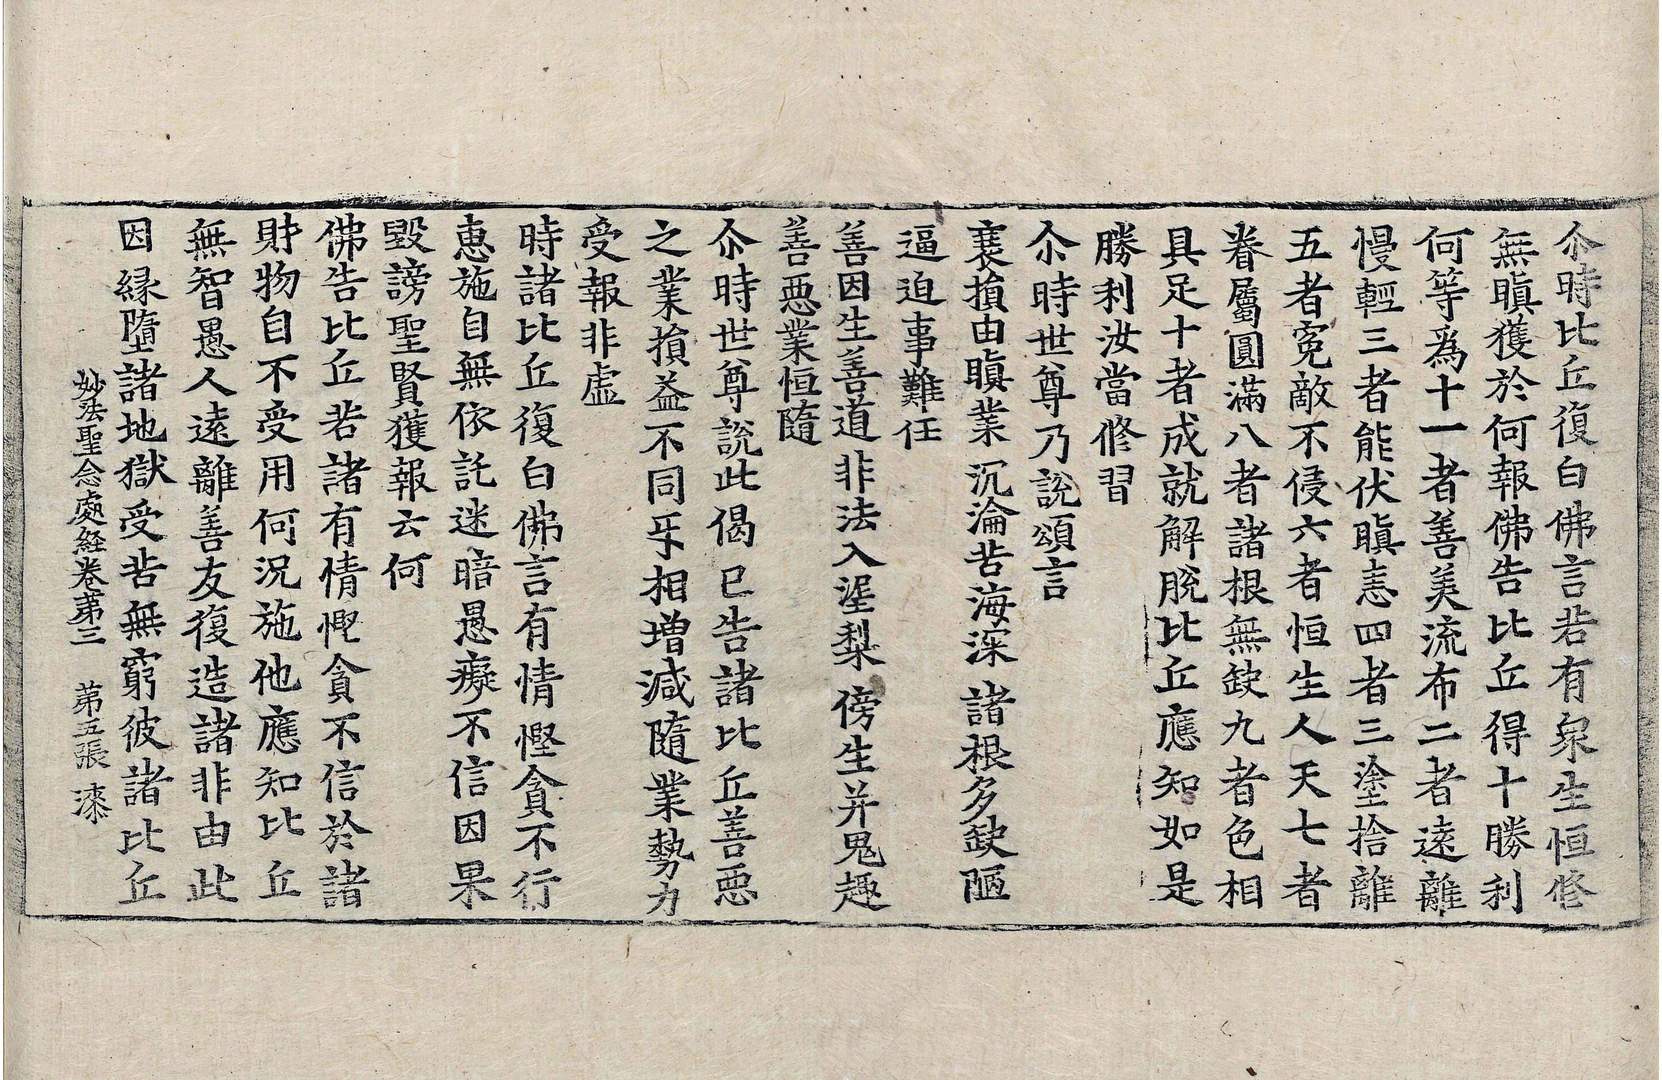 尒時比丘復白佛言若有衆生恒修
無瞋獲於何報佛告比丘得十勝利
何等爲十一者善美流布二者遠離
慢輕三者能伏瞋恚四者三塗捨離
五者寃敵不侵六者恒生人天七者
眷屬圓滿八者諸根無缺九者色相
具足十者成就解脫比丘應知如是
勝利汝當修習
尒時世尊乃說頌言
衰損由瞋業 沉淪苦海深 諸根多缺陋
逼迫事難任
善因生善道 非法入涅梨 傍生并鬼趣
善惡業恒隨
尒時世尊說此偈已告諸比丘善惡
之業損益不同乎相增減隨業勢力
受報非虛
時諸比丘復白佛言有情慳貪不行
惠施自無依託迷暗愚癡不信因果
毀謗聖賢獲報云何
佛告比丘若諸有情慳貪不信於諸
財物自不受用何況施他應知比丘
無智愚人遠離善友復造諸非由此
因緣墮諸地獄受苦無窮彼諸比丘
妙法聖念處経卷苐三 苐五張 漆